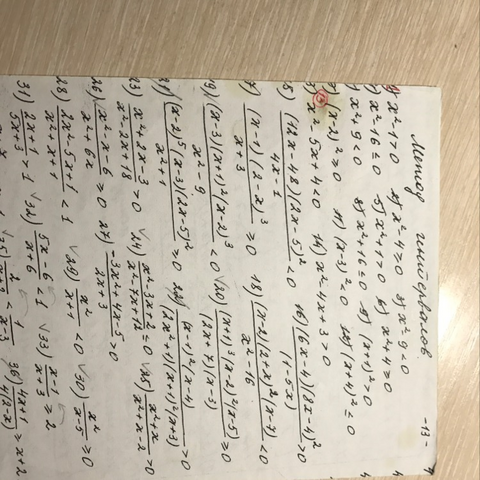 Метод интервалов. -13-
x²-1>0 x²-4≥0 x²-9<0
x²-16≤0 x²+1>0 x²+4≥0
x²+9<0 8) x²+16≤0 (x+1)²=0
(x-2)²≥0 11) (x-3)²≤0 (x+4)²≤0
x²-5x+4<0 14) x²-4x+3>0
15) (12x-48)(2x-5)²/(4x-1)<0 16) (6x-3)(8x-4)²/(1-5x)>0
17) (x-1)(2-x)³/(x+3)≥0 18) (x-2)(2+x)²(x-7)/(x²-16)<0
19) (x-3)(x+1)²(x-2)³/(x²-9)<0 20) (x+1)³(x-2)²(x-5)/((2x+7)(x-3))≥0
21) (x-2)⁵(x-3)(2x-5)²/(x²+1)≥0 22) (x-1)²(x-4)/((2x²+1)(x+1)²(x+3))>0
23) (x²+2x-3)/(x²-2x+18)>0 √24) (x²-3x+2)/(x²-7x+12)≤0 √25) (x²+x)/(x²-x-2)>0
26) (x²-x-6)/(x²+6x)≥0 27) (-3x²+4x-5)/(2x+3)>0
28) (2x²-5x+1)/(x²+x+1)<1 √29) x²/(x+1)<0 √30) x²/(x-5)≥0
31) (2x+1)/(5x+3)>1 √32) 5x/(x+6)<1 √33) (x-1)/(x+3)≥2
36) (4x+1)/(4(2-x))≥x+2